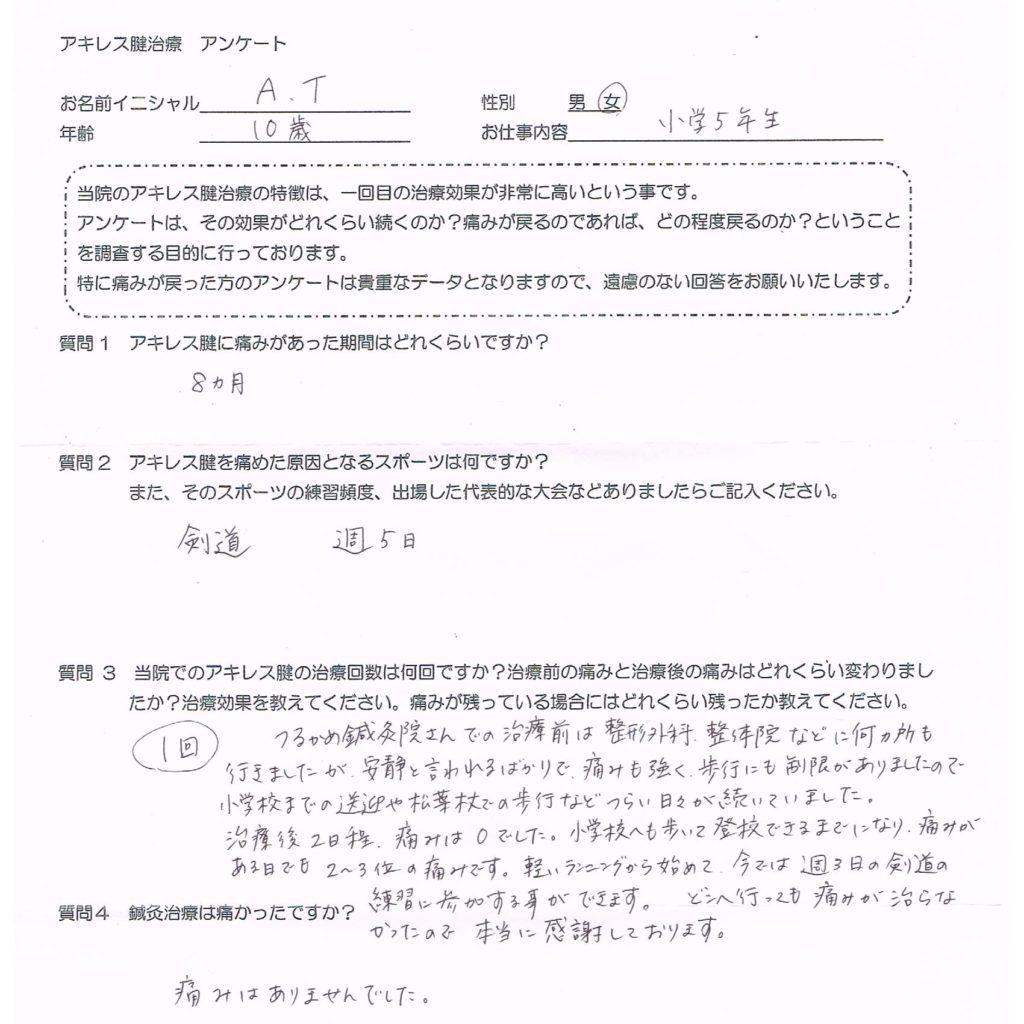 アキレス腱治療　アンケート
お名前イニシャル A.T　性別　男 女
年齢 10歳　お仕事内容 小学5年生
当院のアキレス腱治療の特徴は、一回目の治療効果が非常に高いという事です。
アンケートは、その効果がどれくらい続くのか？痛みが戻るのであれば、どの程度戻るのか？ということ
を調査する目的に行っております。
特に痛みが戻った方のアンケートは貴重なデータとなりますので、遠慮のない回答をお願いいたします。
質問1　アキレス腱に痛みがあった期間はどれくらいですか？
8ヵ月
質問2　アキレス腱を痛めた原因となるスポーツは何ですか？
また、そのスポーツの練習頻度、出場した代表的な大会などありましたらご記入ください。
剣道　週5日
質問 3　当院でのアキレス腱の治療回数は何回ですか？治療前の痛みと治療後の痛みはどれくらい変わりまし
たか？治療効果を教えてください。痛みが残っている場合にはどれくらい残ったか教えてください。
1回　つるかめ鍼灸院さんでの治療前は整形外科、整体院などに何ヵ所も
行きましたが、安静と言われるばかりで、痛みも強く、歩行にも制限がありましたので
小学校までの送迎や松葉杖での歩行などつらい日々が続いていました。
治療後2日程、痛みは0でした。小学校へも歩いて登校できるまでになり、痛みが
ある日でも2〜3位の痛みです。軽いランニングから始めて、今では週3日の剣道の
練習に参加する事ができます。どこへ行っても痛みが治らな
かったので本当に感謝しております。
質問4　鍼灸治療は痛かったですか？
痛みはありませんでした。